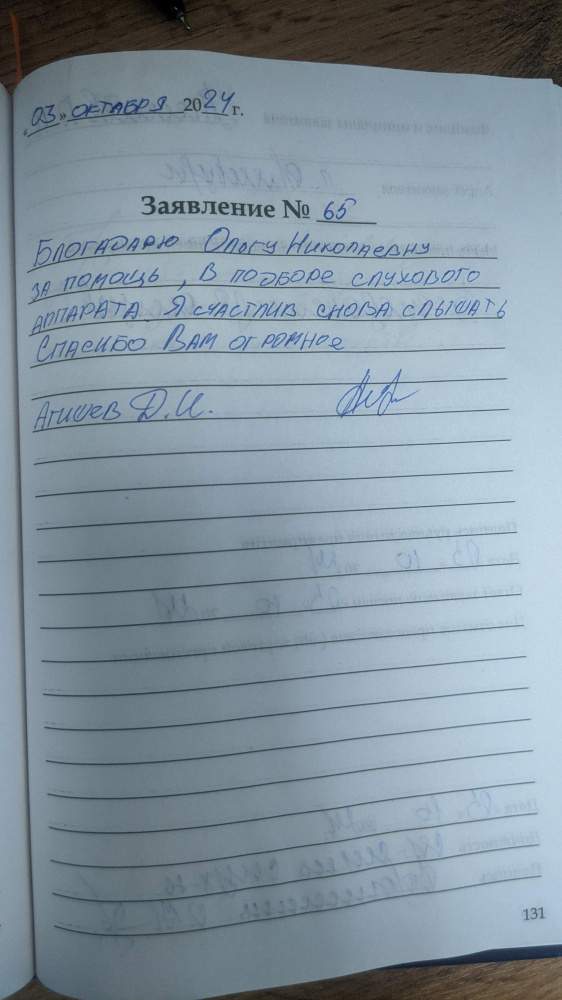 «03» ОКТАБРЯ 2024 г.
Заявление № 65
БЛОГАДАРЮ ОЛЬГУ НИКОЛАЕВНУ
ЗА ПОМОЩЬ, В ПОДБОРЕ СЛУХОВОГО
АППАРАТА. Я СЧАСТЛИВ СНОВА СЛЫШАТЬ
СПАСИБО ВАМ ОГРОМНОЕ
АГИШЕВ Д.И.
131